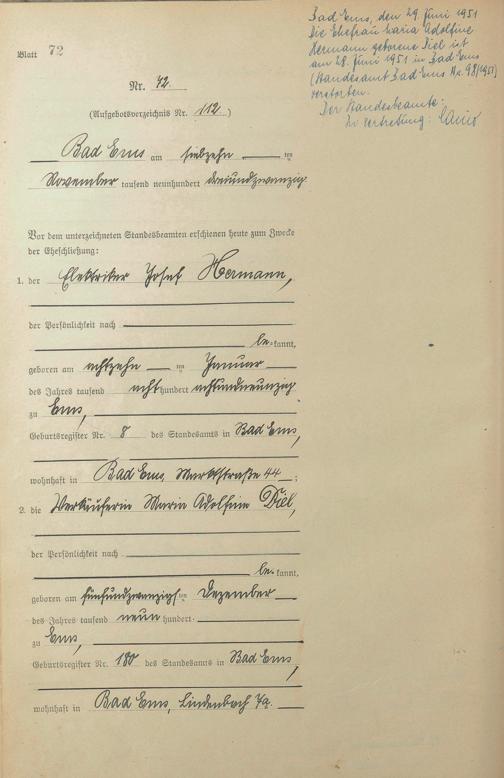 Bad Ems, den 29. Juni 1951
Die Ehefrau Maria Adolfine
Hermann geborene Diel ist
am 28. Juni 1951 in Bad Ems
(Standesamt Bad Ems Nr. 98/1951)
verstorben.
Der Standesbeamte:
In Vertretung:
Blatt 72
Nr. 42.
(Aufgebotsverzeichnis Nr. 112.)
Bad Ems am siebzehn ten
November tausend neunhundert dreiundzwanzig
Vor dem unterzeichneten Standesbeamten erschienen heute zum Zwecke
der Eheschließung:
1. der Elektriker Josef Hermann,
der Persönlichkeit nach
be kannt,
geboren am achtzehn ten Januar
des Jahres tausend acht hundert achtundneunzig
zu Ems,
Geburtsregister Nr. 8 des Standesamts in Bad Ems,
wohnhaft in Bad Ems, Marktstraße 44;
2. die Verkäuferin Maria Adolfine Diel,
der Persönlichkeit nach
be kannt,
geboren am fünfundzwanzigs ten Dezember
des Jahres tausend neun hundert
zu Ems,
Geburtsregister Nr. 180 des Standesamts in Bad Ems,
wohnhaft in Bad Ems, Lindenbach 7a.